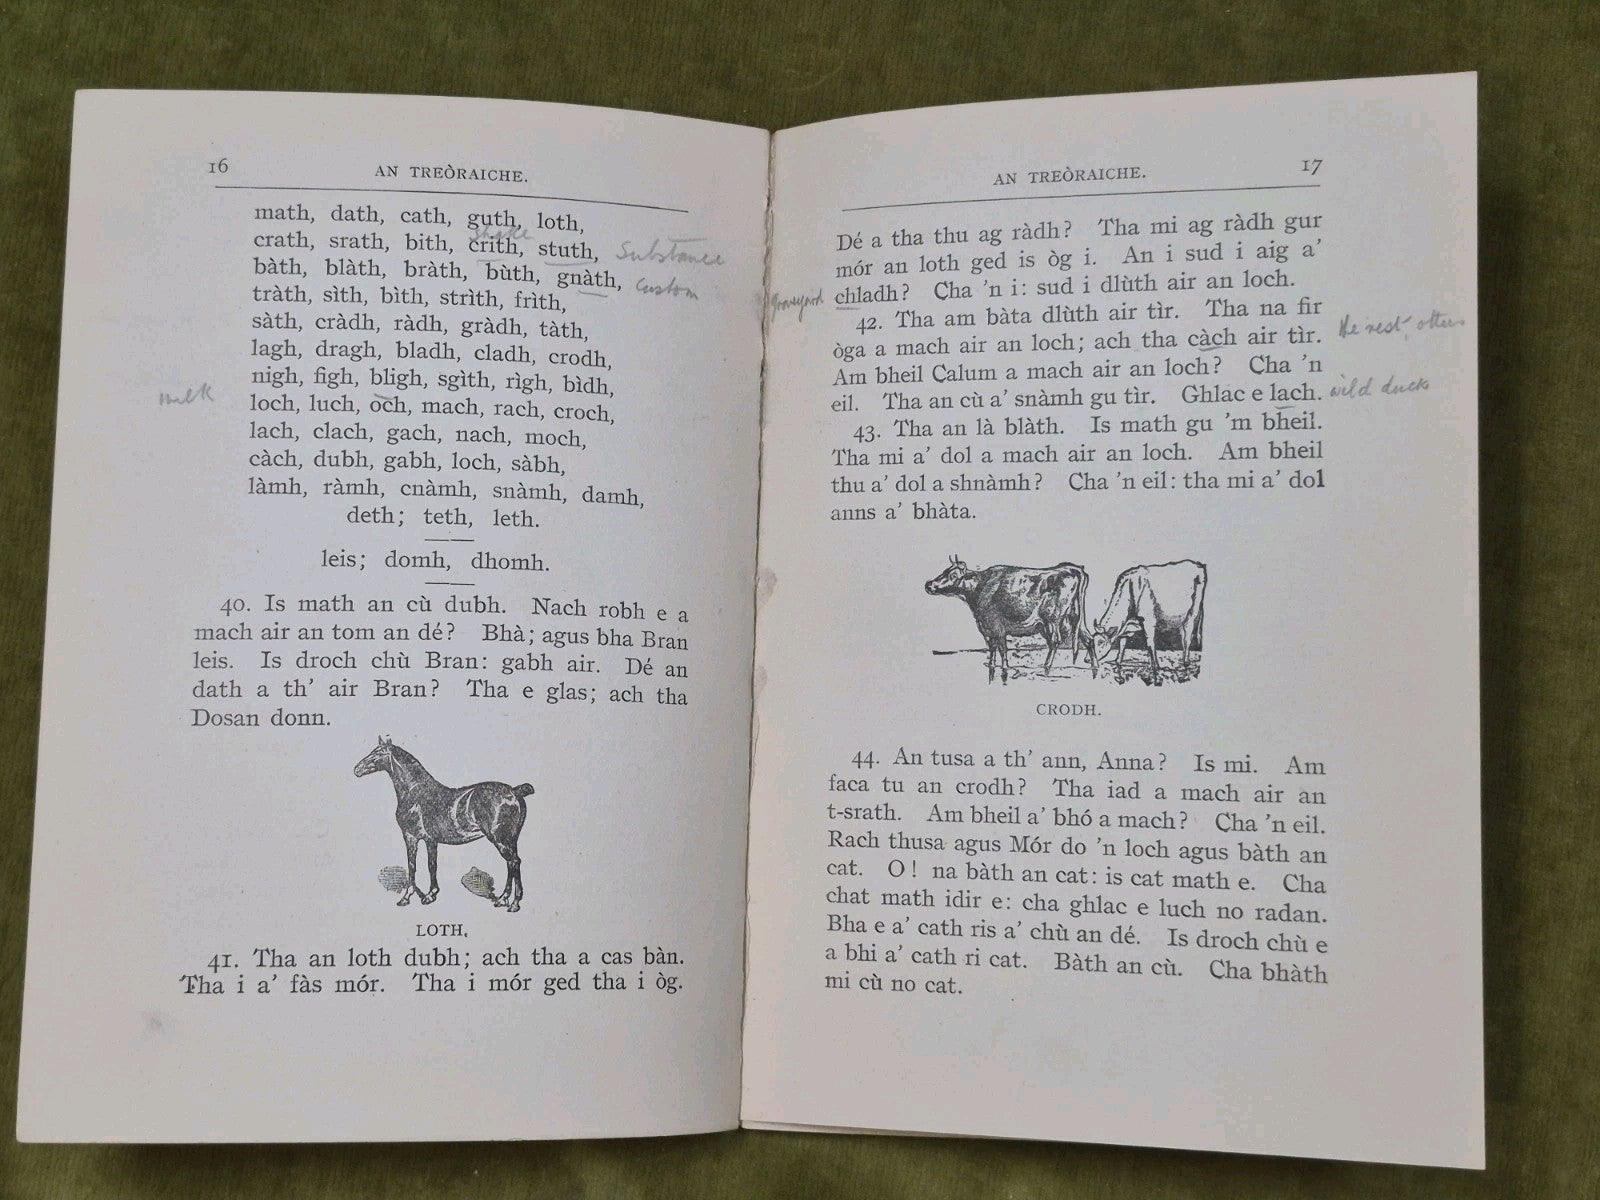 16
AN TREÒRAICHE.
math, dath, cath, guth, loth,
shake
crath, srath, bith, crith, stuth, Substance
bàth, blàth, bràth, bùth, gnàth, custom
tràth, sìth, bìth, strìth, frìth,
sàth, cràdh, ràdh, gràdh, tàth,
lagh, dragh, bladh, cladh, crodh,
nigh, figh, bligh, sgìth, rìgh, bìdh,
milk
loch, luch, och, mach, rach, croch,
lach, clach, gach, nach, moch,
càch, dubh, gabh, loch, sàbh,
làmh, ràmh, cnàmh, snàmh, damh,
deth; teth, leth.
leis; domh, dhomh.
40. Is math an cù dubh. Nach robh e a
mach air an tom an dé? Bhà; agus bha Bran
leis. Is droch chù Bran: gabh air. Dé an
dath a th' air Bran? Tha e glas; ach tha
Dosan donn.
LOTH.
41. Tha an loth dubh; ach tha a cas bàn.
Tha i a' fàs mór. Tha i mór ged tha i òg.
AN TREÒRAICHE.
17
Dé a tha thu ag ràdh? Tha mi ag ràdh gur
mór an loth ged is òg i. An i sud i aig a'
graveyard chladh? Cha 'n i: sud i dlùth air an loch.
42. Tha am bàta dlùth air tìr. Tha na fir
òga a mach air an loch; ach tha càch air tìr. the rest, others
Am bheil Calum a mach air an loch? Cha 'n
eil. Tha an cù a' snàmh gu tìr. Ghlac e lach. wild duck
43. Tha an là blàth. Is math gu 'm bheil.
Tha mi a' dol a mach air an loch. Am bheil
thu a' dol a shnàmh? Cha 'n eil: tha mi a' dol
anns a' bhàta.
CRODH.
44. An tusa a th' ann, Anna? Is mi. Am
faca tu an crodh? Tha iad a mach air an
t-srath. Am bheil a' bhó a mach? Cha 'n eil.
Rach thusa agus Mór do 'n loch agus bàth an
cat. O! na bàth an cat: is cat math e. Cha
chat math idir e: cha ghlac e luch no radan.
Bha e a' cath ris a' chù an dé. Is droch chù e
a bhi a' cath ri cat. Bàth an cù. Cha bhàth
mi cù no cat.